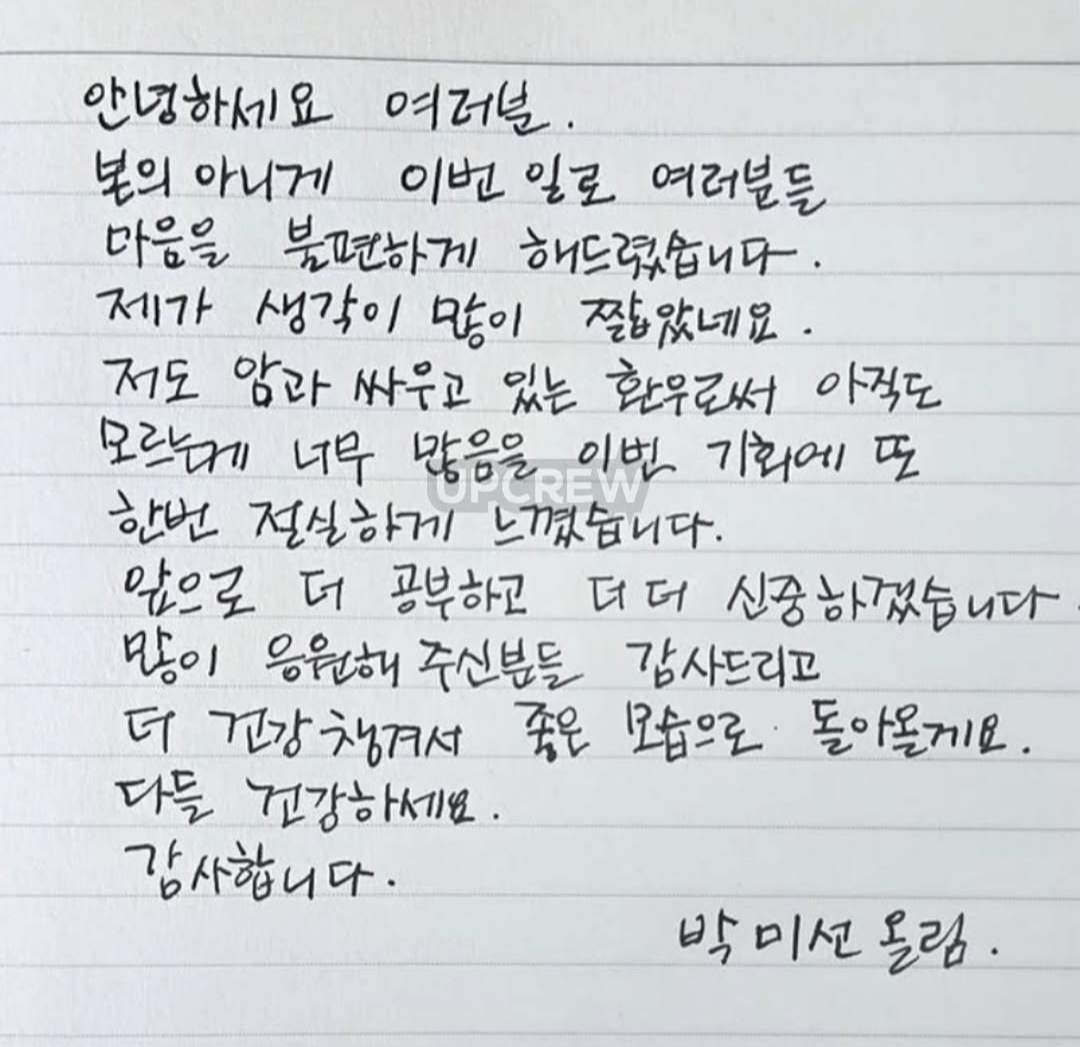 안녕하세요 여러분.
본의 아니게 이번 일로 여러분들
마음을 불편하게 해드렸습니다.
제가 생각이 많이 짧았네요.
저도 암과 싸우고 있는 환우로써 아직도
모르는게 너무 많음을 이번 기회에 또
UPCREW
한번 절실하게 느꼈습니다.
앞으로 더 공부하고 더 더 신중하겠습니다.
많이 응원해 주신분들 감사드리고
더 건강 챙겨서 좋은 모습으로 돌아올게요.
다들 건강하세요.
감사합니다.
박미선 올림.